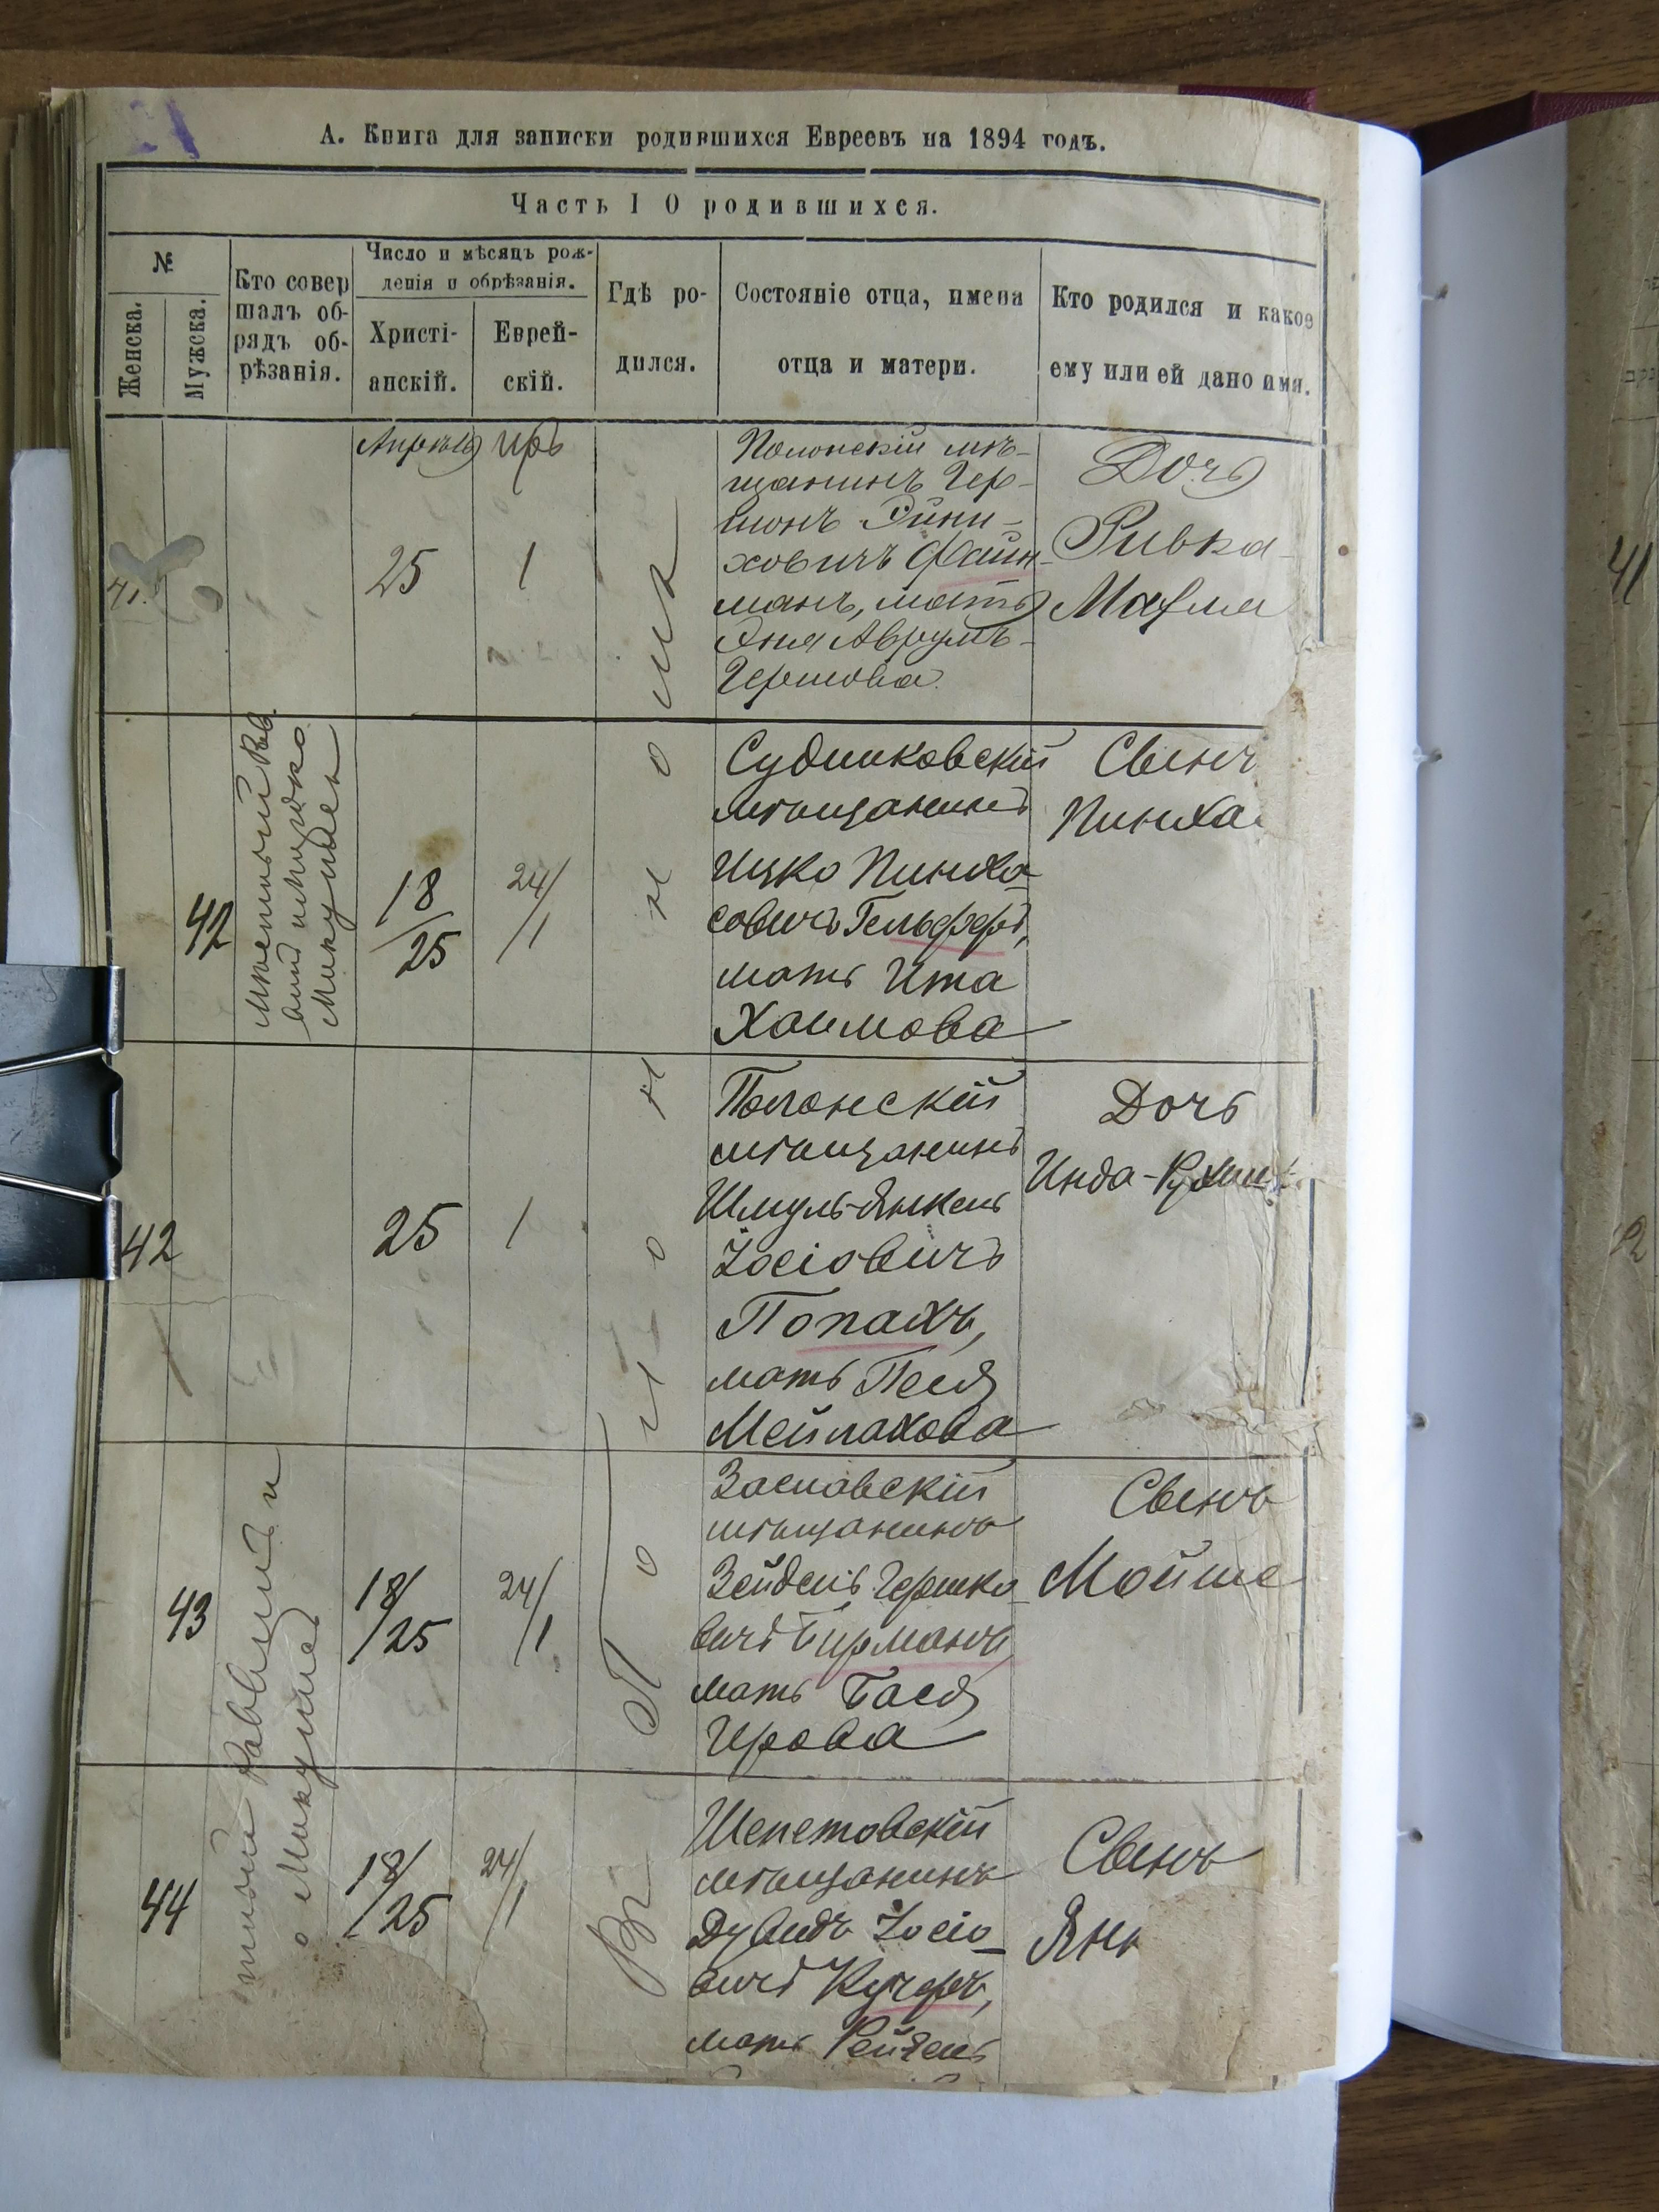 А. Книга для записки родившихся Евреевъ на 1894 годъ.
Часть I О родившихся.
№
Женска.
Мужска.
Кто совер
шалъ об-
рядъ об-
рѣзанія.
Число и мѣсяцъ рож-
денія и обрѣзанія.
Христі-
анскій.
Еврей-
скій.
Гдѣ ро-
дился.
Состояніе отца, имена
отца и матери.
Кто родился и какое
ему или ей дано имя.
41.
Апрѣль
25
Iръ
1
Полонскій мѣ-
щанинъ Гер-
шонъ Эйни-
ховичъ Файн-
манъ, мать
Эня Аврумъ-
Гершова.
Дочь
Ривка-
Малья
42
Мѣстный Рав.
Микушель
18/25
24/1
Судилковскій
мѣщанинъ
Ицко Пинха-
совичъ Гельфэръ,
мать Ита
Хаимова
Сынъ
Пинха
42
25
1
Полонскій
мѣщанинъ
Шмуль-Янкель
Іосіовичъ
Попахъ,
мать Песя
Мейлахова
Дочь
Инда-Рухля
43
18/25
24/1
Заславскій
мѣщанинъ
Зейдель Гершко
вичъ Бирманъ,
мать Бася
Урова
Сынъ
Мойше
Раввинъ и
Микушель
44
18/25
24/1
Шепетовскій
мѣщанинъ
Дувидъ Іосіо-
вичъ Кучеръ,
мать Рейзель
Сынъ
Янк
Въ Полонномъ
41